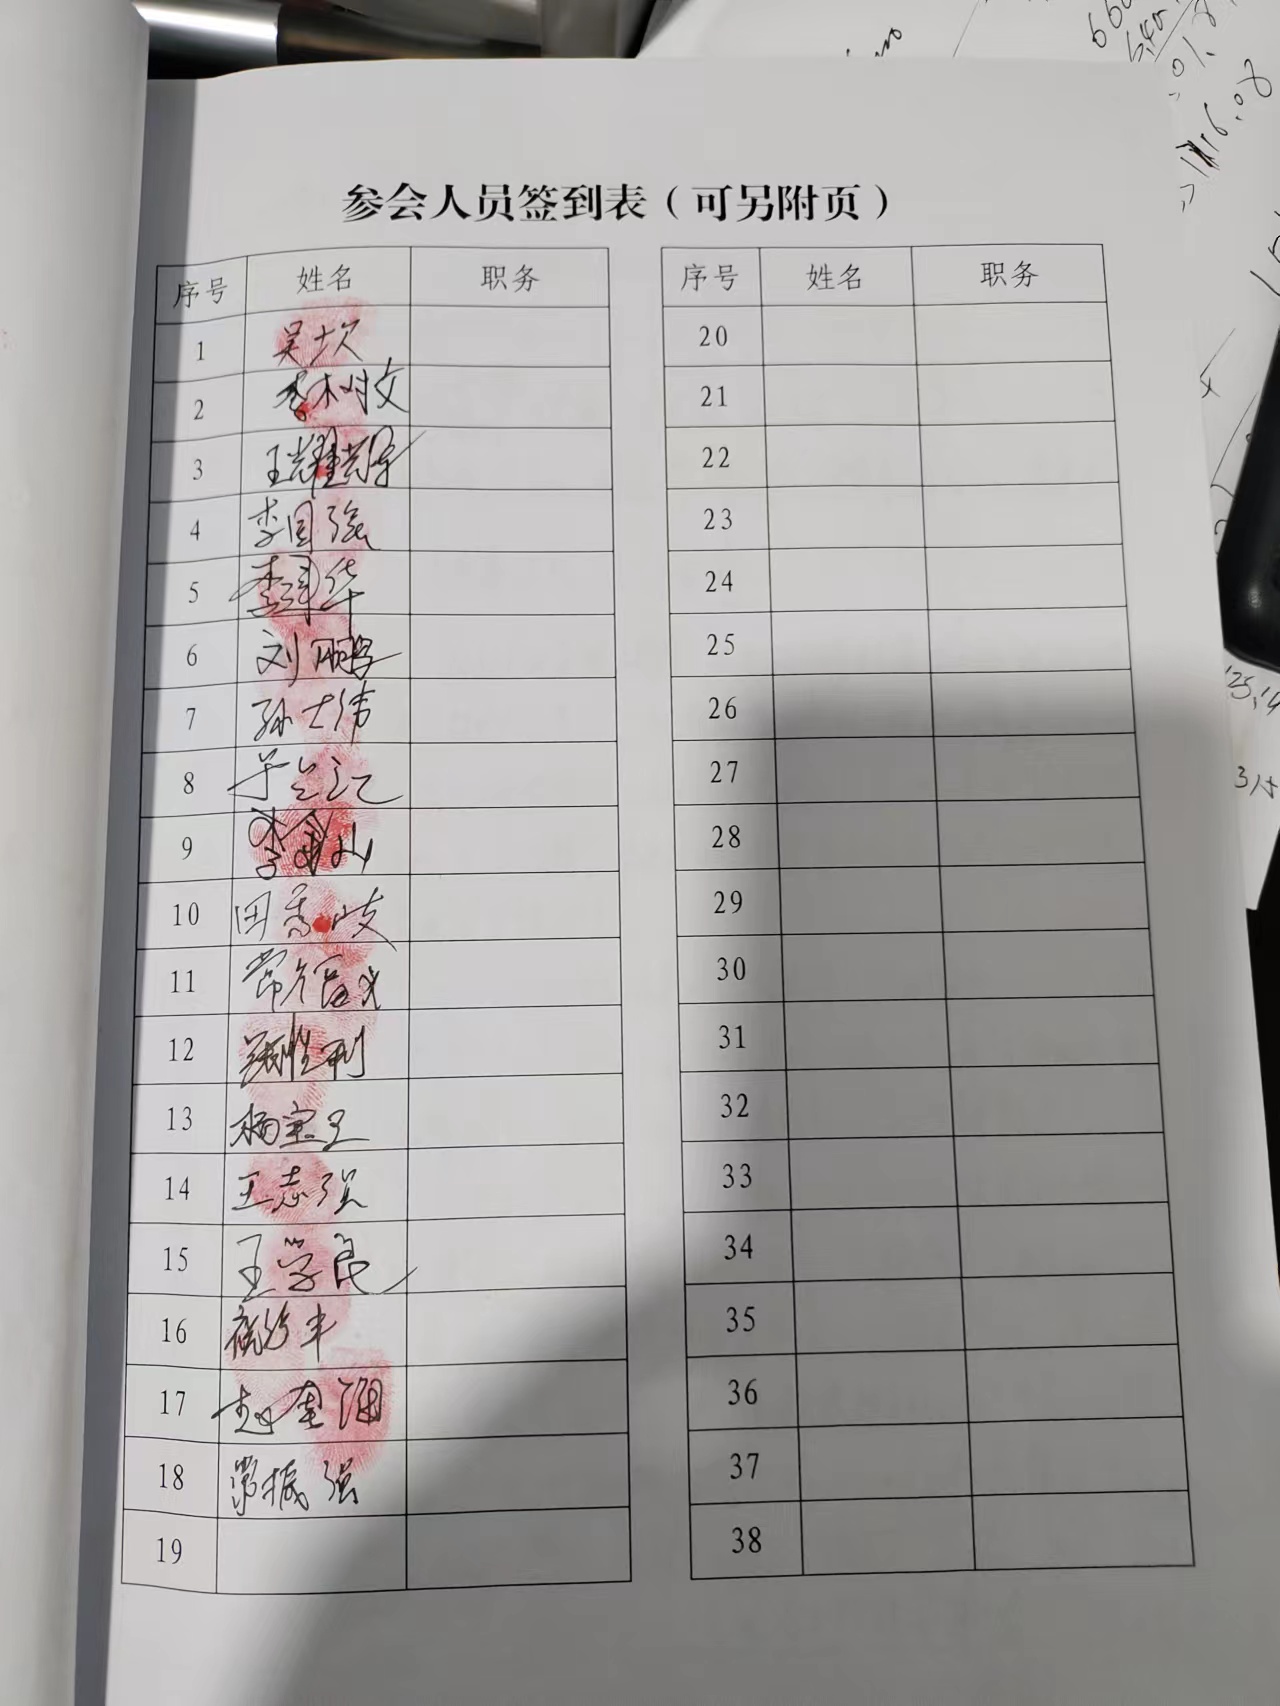 参会人员签到表（可另附页）
序号 姓名 职务
1 吴坎
2 李树文
3 王耀
4 李国强
5 李泽华
6 刘鹏
7 孙士伟
8 于兰江
9 李金山
10 田秀岐
11 常富
12 胜利
13 杨宝玉
14 王志强
15 王学良
16
17 赵奎润
18 常振强
19
序号 姓名 职务
20
21
22
23
24
25
26
27
28
29
30
31
32
33
34
35
36
37
38
116.08